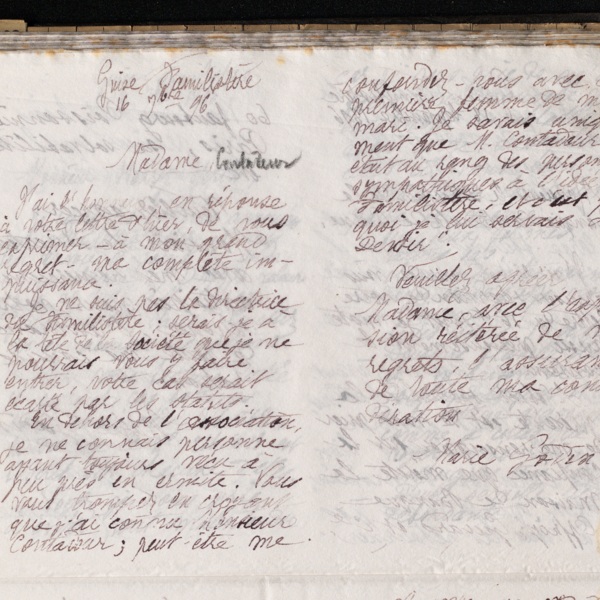 Guise Familistère
16 9bre 96
Madame Contadeur
J'ai en réponse
à votre lettre d'hier, de vous
exprimer à mon grand
regret ma complète im-
puissance.
Je ne suis pas la directrice
du Familistère ; serais-je à
la tête de la Société que je ne
pourrais vous y faire
entrer, votre cas serait
écarté par les statuts.
En dehors de l'association,
je ne connais personne
ayant toujours vécu à
peu près en ermite. Vous
vous trompez en croyant
que j'ai connu Monsieur
; peut-être me
confondez-vous avec
première femme de m
mari. Je savais uniq
ment que M.
était au rang des person
sympathiques à l'
Familistère, et c'est p
quoi je lui servais
Devoir".
Veuillez agréer
Madame, avec l'exp
sion réitérée de m
regrets, l'assuran
de toute ma con
dération
Marie